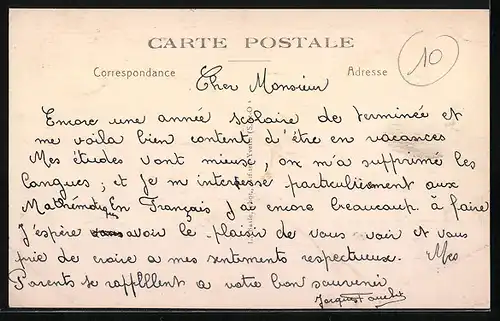 CARTE POSTALE
10
Correspondance
Adresse
Cher Monsieur
Encore une année scolaire de terminée et
me voila bien content d'être en vacances
Mes études vont mieux, on m'a supprimé les
langues, et je m interesse particulièrement aux
Mathématiques En Français j'ai encore beaucoup à faire
J'espère avoir le plaisir de vous voir et vous
prie de croire a mes sentiments respectueux. Mes
Parents se rappllent a votre bon souvenir
Jacques